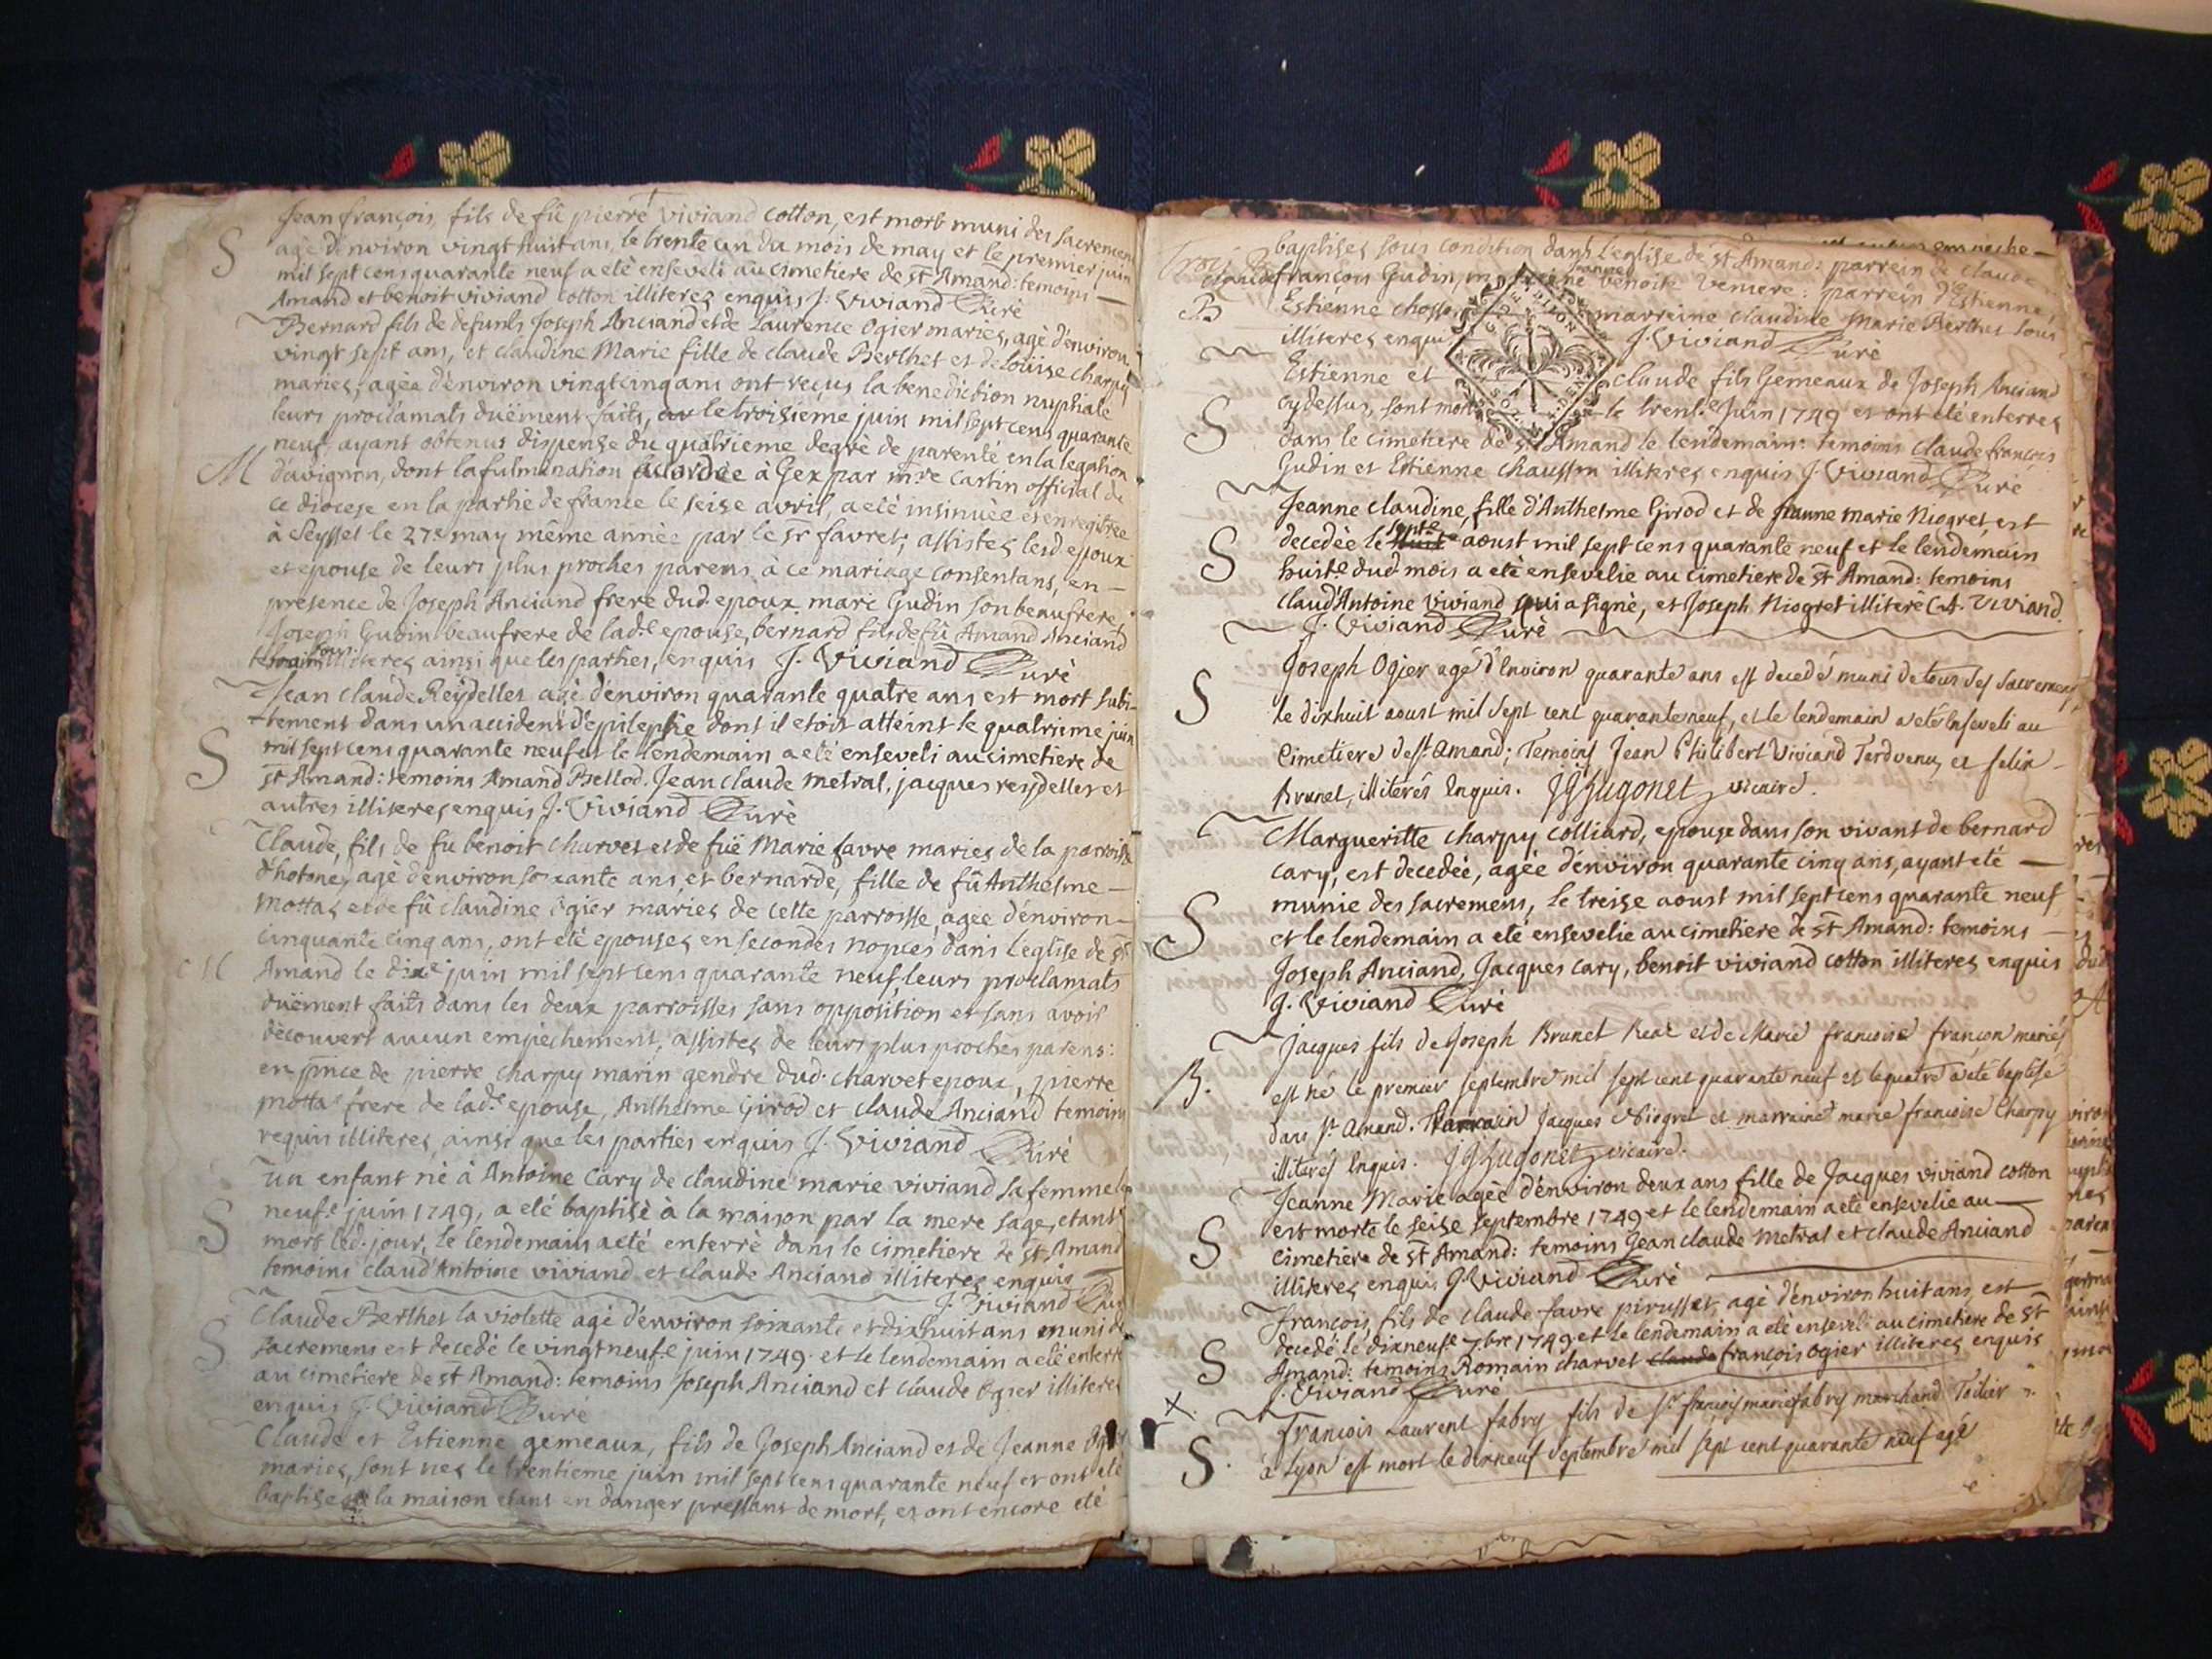 Jean françois, fils de fû pierre viviand cotton, est mort muni des sacremens
S
agé d'environ vingt huit ans, le trente un du mois de may et le premier juin
mil sept cens quarante neuf a eté enseveli au cimetiere de st Amand: temoins —
Amand et benoit viviand cotton illiteres enquis J. Viviand Curé
Bernard fils de defunts Joseph Anciand et de Laurence Ogier mariés, agé d'environ
vingt sept ans, et claudine Marie fille de claude Berthet et de Loüise charpy
mariés, agée d'environ vingt cinq ans ont reçus la benediction nuptiale
leurs proclamats duëment faits, le troisieme juin mil sept cens quarante
neuf, ayant obtenus dispense du quatrieme degré de parenté en la legation
M
d'avignon, dont la fulmination accordée à Gex par mre Castin official de
ce diocese en la partie de france le seise avril, a eté insinuée et enregitrée
à Seyssel le 27e may même année par le sr favret; assistes lesd epoux
et epouse de leurs plus proches parens à ce mariage consentans, en —
presence de Joseph Anciand frere dud. epoux marc Gudin son beaufrere,
Joseph Gudin beaufrere de lad.e epouse, bernard fils de fû Amand Anciand
temoins tous illiteres ainsi que les parties, enquis J. Viviand Curé
Jean claude Reydellet agé d'environ quarante quatre ans est mort subi-
tement dans un accident d'epilepsie dont il etoit atteint le quatrieme juin
S
mil sept cens quarante neuf et le lendemain a eté enseveli au cimetiere de
st Amand: temoins Amand Bellod. Jean claude metral, jacques reydellet et
autres illiteres enquis J. Viviand Curé
Claude, fils de fu benoit charvet et de fuë Marie favre mariés de la parroisse
d'hotone, agé d'environ soixante ans, et bernarde, fille de fû Anthesme —
mottas et de fû claudine ogier mariés de cette parroisse, agée d'environ —
cinquante cinq ans, ont eté epousés en secondes nopces dans l'eglise de st
M
Amand le dixe juin mil sept cens quarante neuf, leurs proclamats
duëment faits dans les deux parroisses sans opposition et sans avoir
decouvert aucun empêchement, assistes de leurs plus proches parens:
en pñce de pierre charpy marin gendre dud. charvet epoux, pierre
mottas frere de lad.e epouse, Anthesme Girod et claude Anciand temoins
requis illiteres, ainsi que les parties enquis J. Viviand Curé
un enfant né à Antoine Cary de claudine marie viviand sa femme le
S
neuf.e juin 1749, a eté baptisé à la maison par la mere sage, etant
mort led. jour, le lendemain a eté enterré dans le cimetiere de st Amand
temoins claud'Antoine viviand et claude Anciand illiteres enquis
J. Viviand Curé
Claude Berthet la violette agé d'environ soixante et dixhuit ans muni de
S
sacremens est decedé le vingtneuf.e juin 1749. et le lendemain a eté enterré
au cimetiere de st Amand: temoins Joseph Anciand et claude Ogier illiteres
enquis J. Viviand Curé
Claude et Estienne gemeaux, fils de Joseph Anciand et de Jeanne Ogier
mariés, sont nés le trentieme juin mil sept cens quarante neuf et ont eté
baptisés à la maison etans en danger pressant de mort, et ont encore eté
baptisés sous condition dans l'eglise de st Amand: parrein de claude
claude françois Gudin, benoite Veniere: parrein d'Estienne,
B
Estienne chosson marreine claudine Marie Berthet tous
illiteres enquis J. Viviand Curé
Estienne et claude fils Gemeaux de Joseph Anciand
S
cydessus, sont morts le trent.e Juin 1749 et ont eté enterrés
dans le cimetiere de st Amand le lendemain: temoins claude françois
Gudin et Estienne chausson illiteres enquis J. Viviand Curé
Jeanne claudine, fille d'Anthesme Girod et de Jeanne marie Niogret, est
S
decedée le sept.e aoust mil sept cens quarante neuf et le lendemain
huit.e dud. mois a eté ensevelie au cimetiere de st Amand: temoins
claud'Antoine Viviand qui a signé, et Joseph Niogret illiteré C.A. Viviand.
J. Viviand Curé
Joseph Ogier agé d'Environ quarante ans est decedé muni de tous ses sacremens,
S
le dixhuit aoust mil sept cent quarante neuf, et le lendemain a eté Enseveli au
Cimetiere de st. amand; Temoins Jean Philibert Viviand Terdvenu, et felix
Brunet, illiterés Enquis. JJ Hugonet vicaire.
Margueritte charpy colliard, epouse dans son vivant de bernard
cary, est decedée, agée d'environ quarante cinq ans, ayant eté —
S
munie des sacremens, le treise aoust mil sept cens quarante neuf
et le lendemain a eté ensevelie au cimetiere de st Amand: temoins —
Joseph Anciand, Jacques cary, benoit viviand cotton illiteres enquis
J. Viviand Curé
Jacques fils de Joseph Brunet Real et de Marie francoise françon mariés
B.
est né le premier septembre mil sept cent quarante neuf et le quatre a été baptisé
dans st. amand. Parrain Jacques Niogret et marraine marie francoise Charpy
illiterés Enquis. JJ Hugonet vicaire.
Jeanne Marie agée d'environ deux ans fille de Jacques viviand cotton
S
est morte le seise septembre 1749 et le lendemain a eté ensevelie au —
cimetiere de st Amand: temoins Jean claude Metral et claude Anciand
illiteres enquis J. Viviand Curé
françois, fils de claude favre pirusset, agé d'environ huit ans, est
S
decedé le dixneuf.e 7.bre 1749 et le lendemain a eté enseveli au cimetiere de st
Amand: temoins Romain charvet claude françois ogier illiteres enquis
J. Viviand Curé
X
François Laurent fabry fils de sr. françois marie fabry marchand Toilier
S.
à Lyon est mort le dixneuf septembre mil sept cent quarante neuf agé